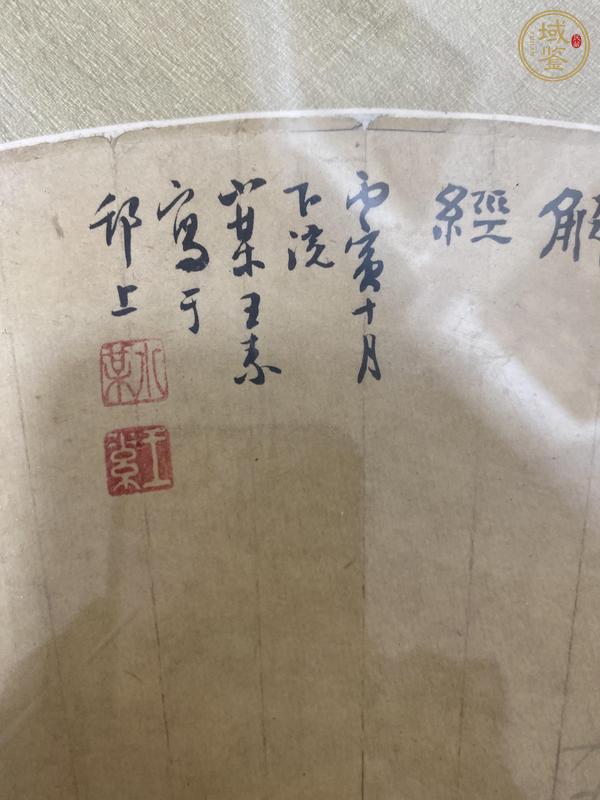 解
經
丙寅十月
下浣
小某王素
寫于
邗上
小某
王素
域鉴